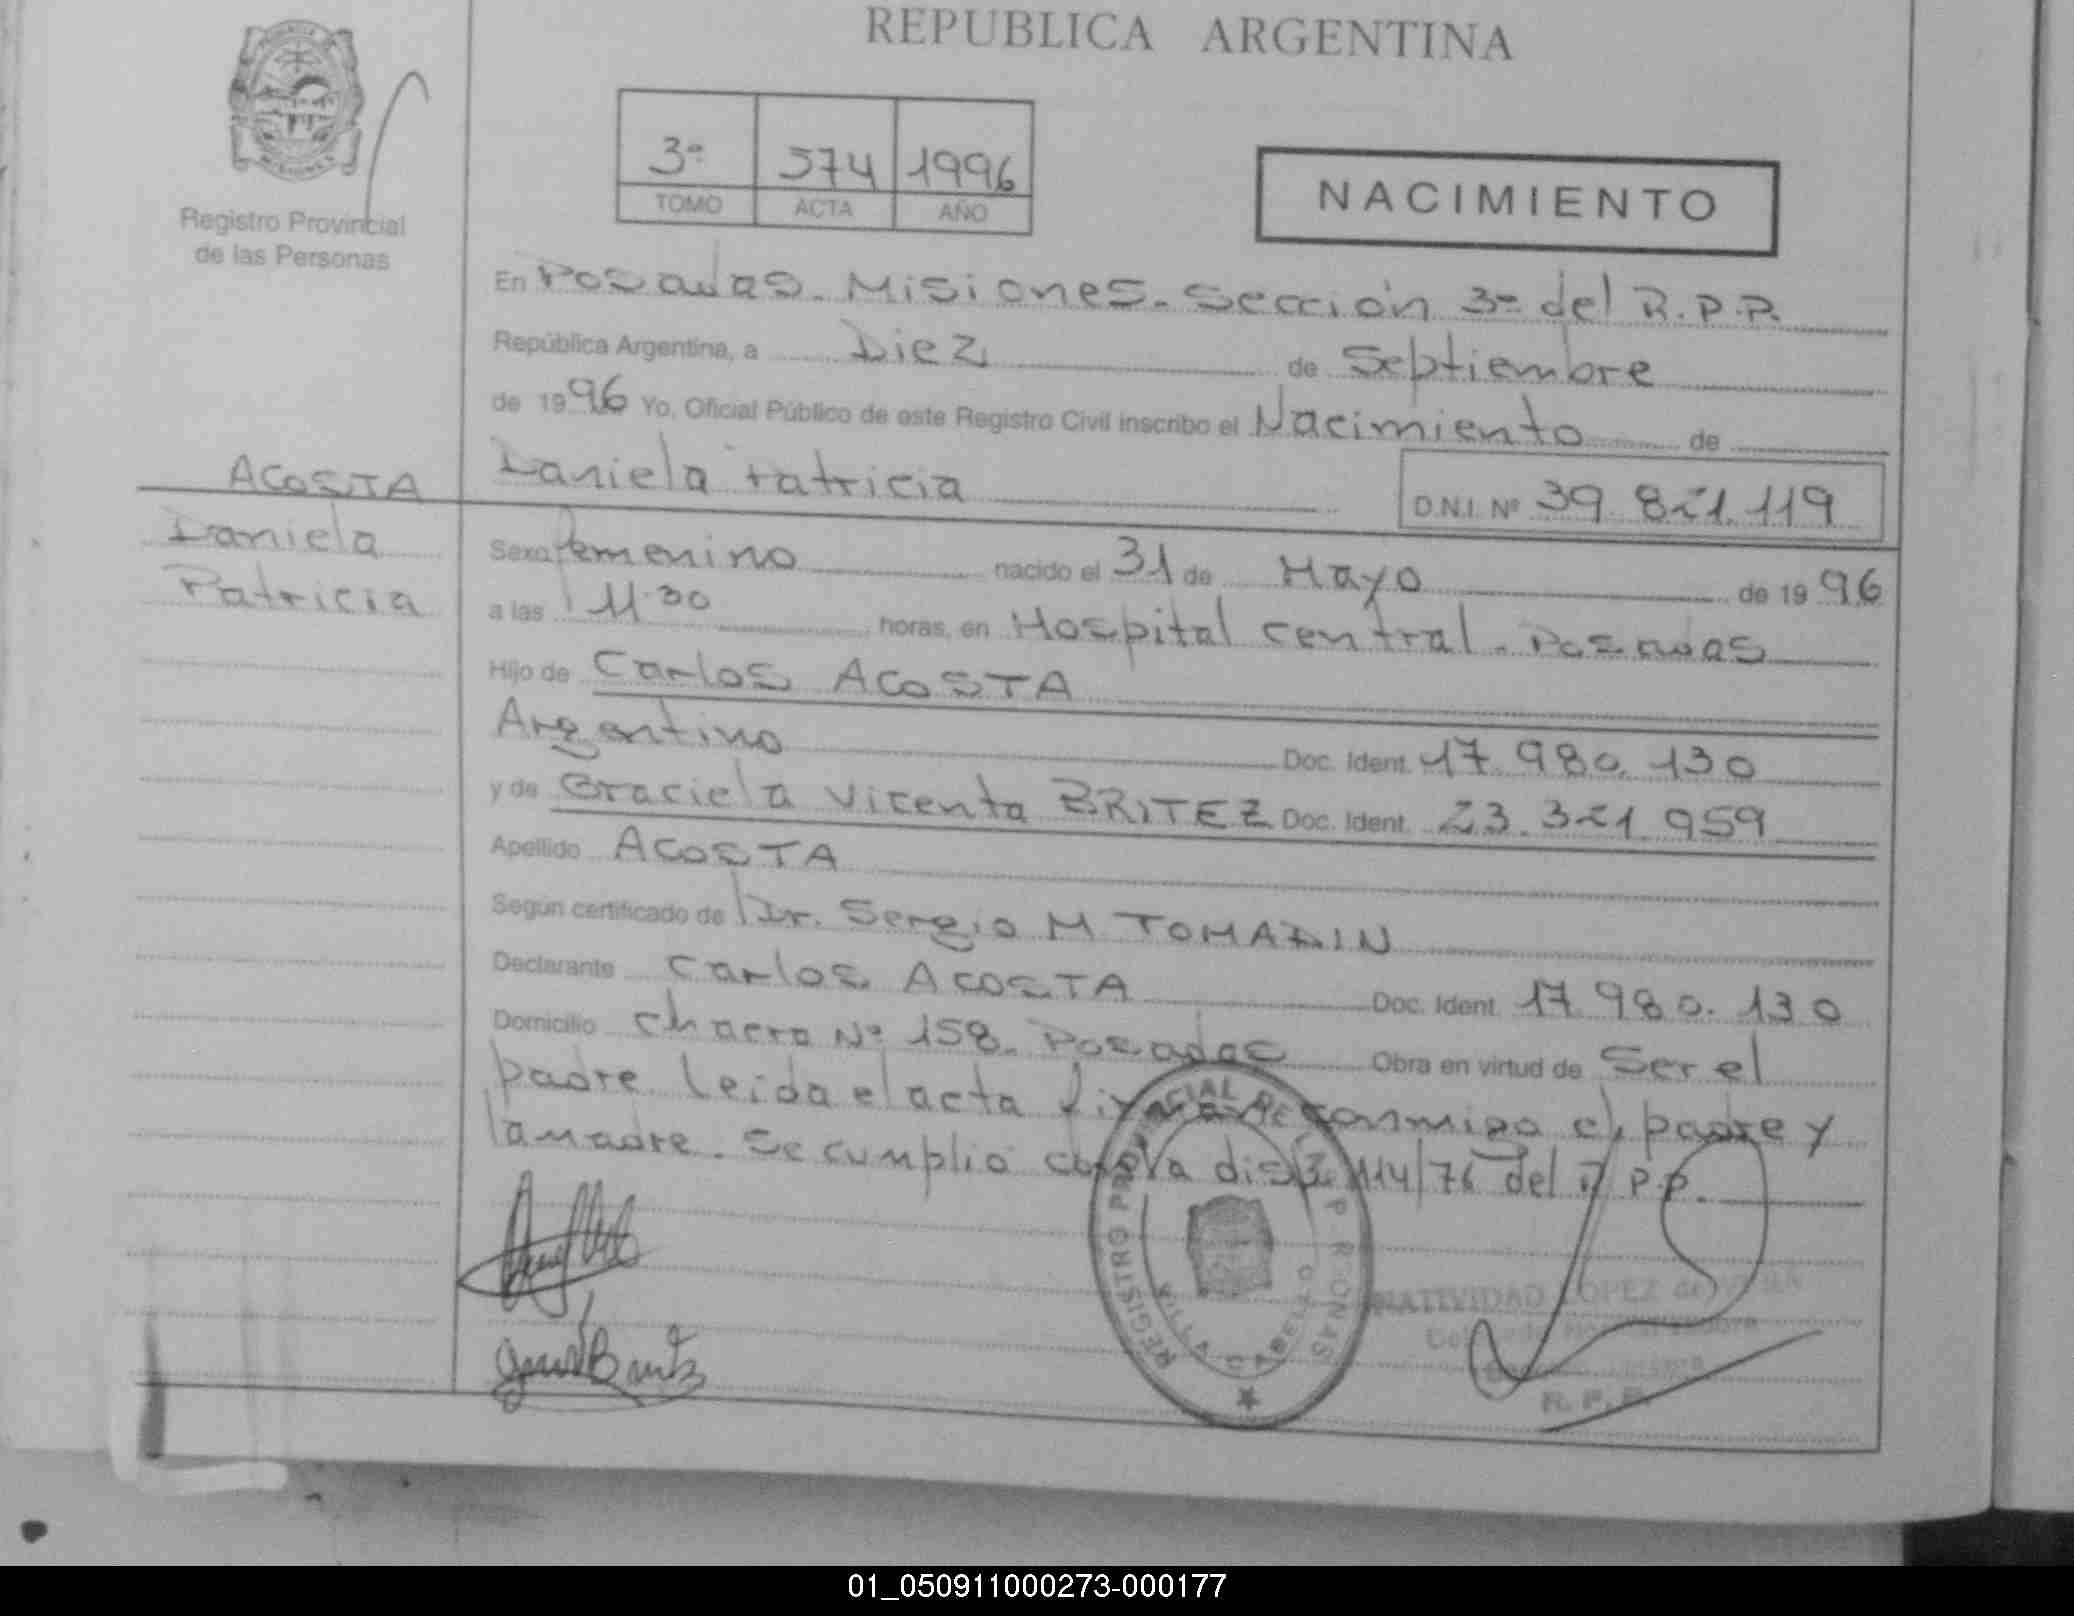 REPUBLICA ARGENTINA
3ª 574 1996
TOMO ACTA AÑO
NACIMIENTO
Registro Provincial
de las Personas
En Posadas - Misiones - Sección 3ª del R.P.P.
República Argentina, a Diez de Septiembre
de 1996 Yo, Oficial Público de este Registro Civil inscribo el Nacimiento de
Daniela Patricia D.N.I. Nº 39.821.119
ACOSTA
Daniela
Patricia
Sexo femenino nacido el 31 de Mayo de 1996
a las 11:30 horas, en Hospital Central - Posadas
Hijo de Carlos ACOSTA
Argentino Doc. Ident. 17.980.130
y de Graciela Vicenta BRITEZ Doc. Ident. 23.321.959
Apellido ACOSTA
Según certificado de Dr. Sergio M TOMADIN
Declarante Carlos ACOSTA Doc. Ident. 17.980.130
Domicilio Chacra Nº 158 - Posadas Obra en virtud de Ser el
padre Leida el acta conmigo el padre y
la madre. Se cumplió con la disp. 114/76 del R.P.P.
REGISTRO PROVINCIAL DE
NATIVIDAD LOPEZ de
R.P.P.
01_050911000273-000177